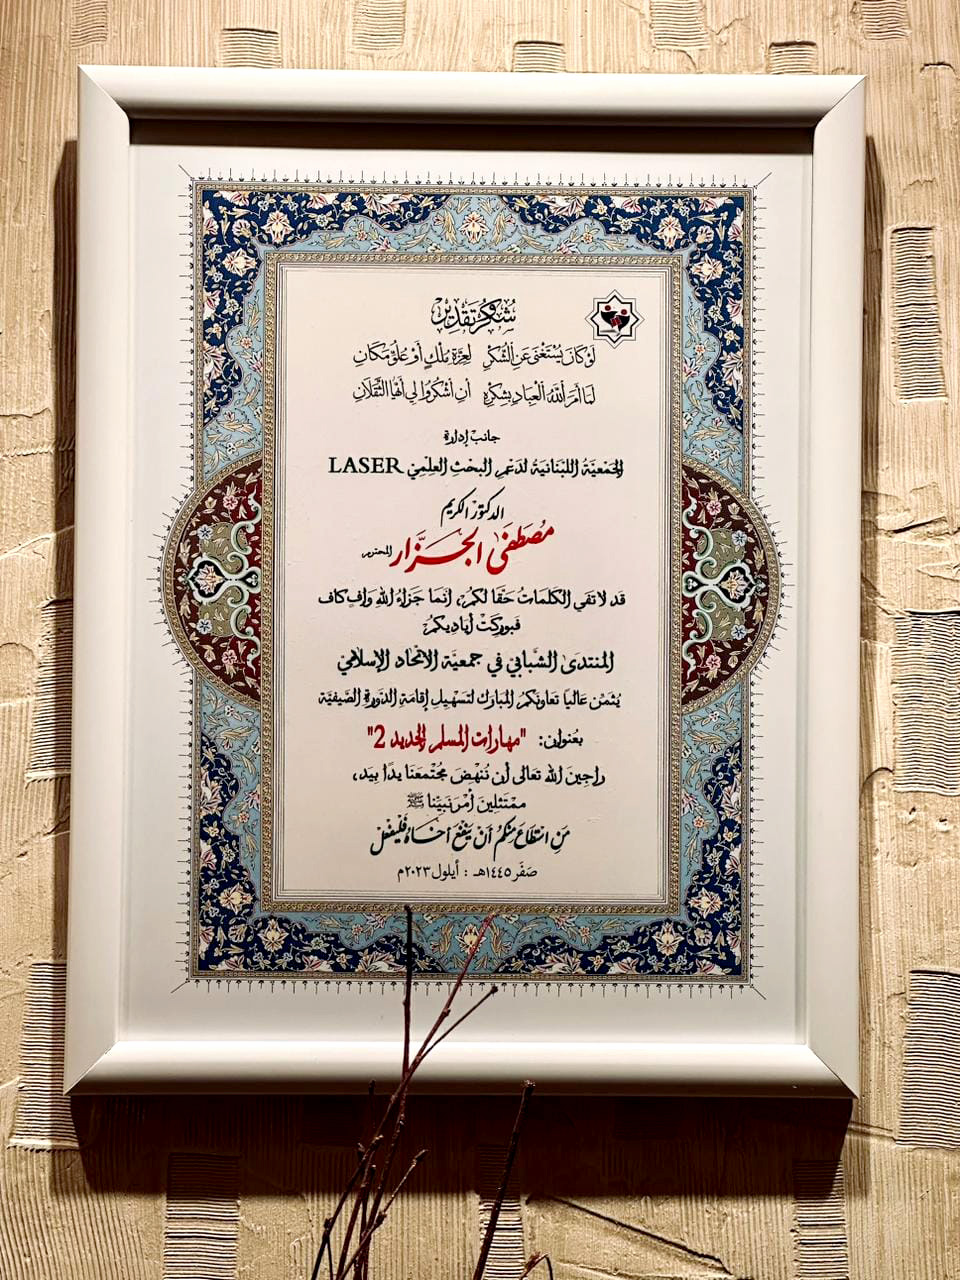 شُكْرٌ وَتَقْدِيرٌ
لَوْ كَانَ يَسْتَغْنِي عَنِ الشُّكْرِ لِعِزَّةِ مُلْكٍ أَوْ عُلُوِّ مَكَانِ
لَمَا أَمَرَ اللَّهُ الْعِبَادَ بِشُكْرِهِ أَنِ اشْكُرُوا لِي أَيُّهَا الثَّقَلَانِ
جانب إدارة
الجَمْعِيَّة اللبنانيَّة لدَعْمِ البَحْثِ العِلْمِيّ LASER
الدكتور الكريم
مُصْطَفَى الجَزَّار المحترم
قد لا تفي الكلماتُ حقا لكمُ، إنما جزاهُ اللهِ وافٍ كاف
فبوركتْ أياديكمُ
المنتدى الشَّبابيّ في جمعيَّة الاتّحاد الإسلاميّ
يُثمّن عاليا تعاونَكمُ المبارَك لتسهيلِ إقامَةِ الدّورةِ الصّيفيّة
بعُنوان: "مهارات المسلم الجديد 2"
راجِينَ اللهَ تعَالى أن نُنهِضَ مُجْتمعَنَا يدًا بيَد،
ممْتَثِلِينَ أمْرَ نَبيّنا ﷺ
مَنِ اسْتَطَاعَ مِنْكُمْ أَنْ يَنْفَعَ أَخَاهُ فَلْيَفْعَلْ
صَفَر ١٤٤٥هـ : أيلول ٢٠٢٣م